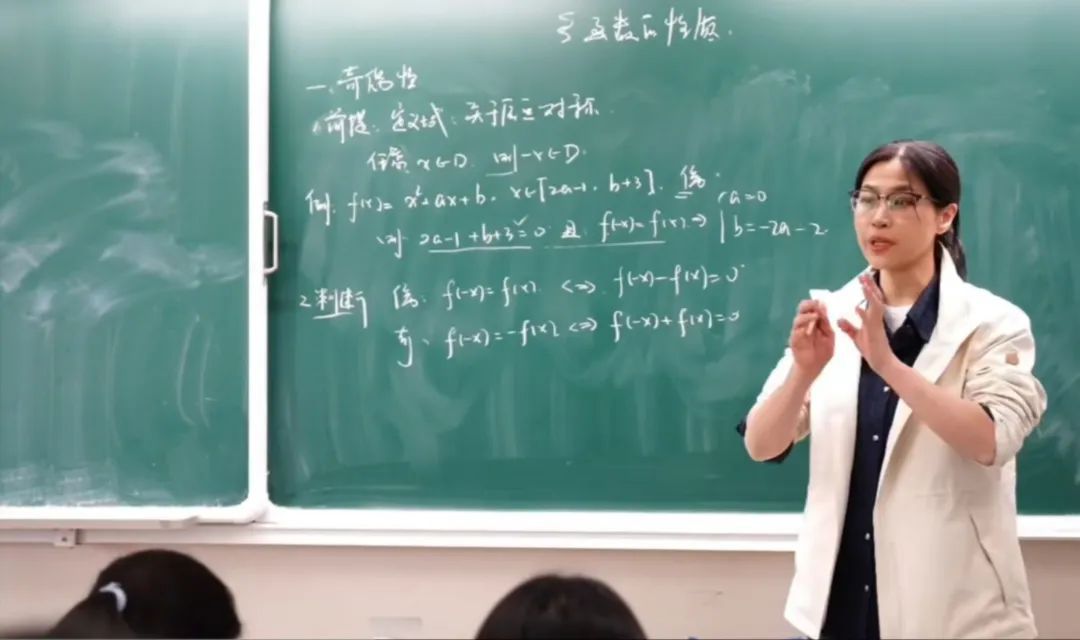 § 函数的性质.
一、奇偶性
前提: 定义域: 关于原点对称.
任意 x∈D. 则-x∈D.
例. f(x)= x²+ax+b. x∈[2a-1, b+3]. 偶.
则 2a-1+b+3=0 且 f(-x)=f(x) ⇒ { a=0
b=-2a-2
2.判断 偶: f(-x)=f(x). ⇔ f(-x)-f(x)=0
奇: f(-x)=-f(x) ⇔ f(-x)+f(x)=0